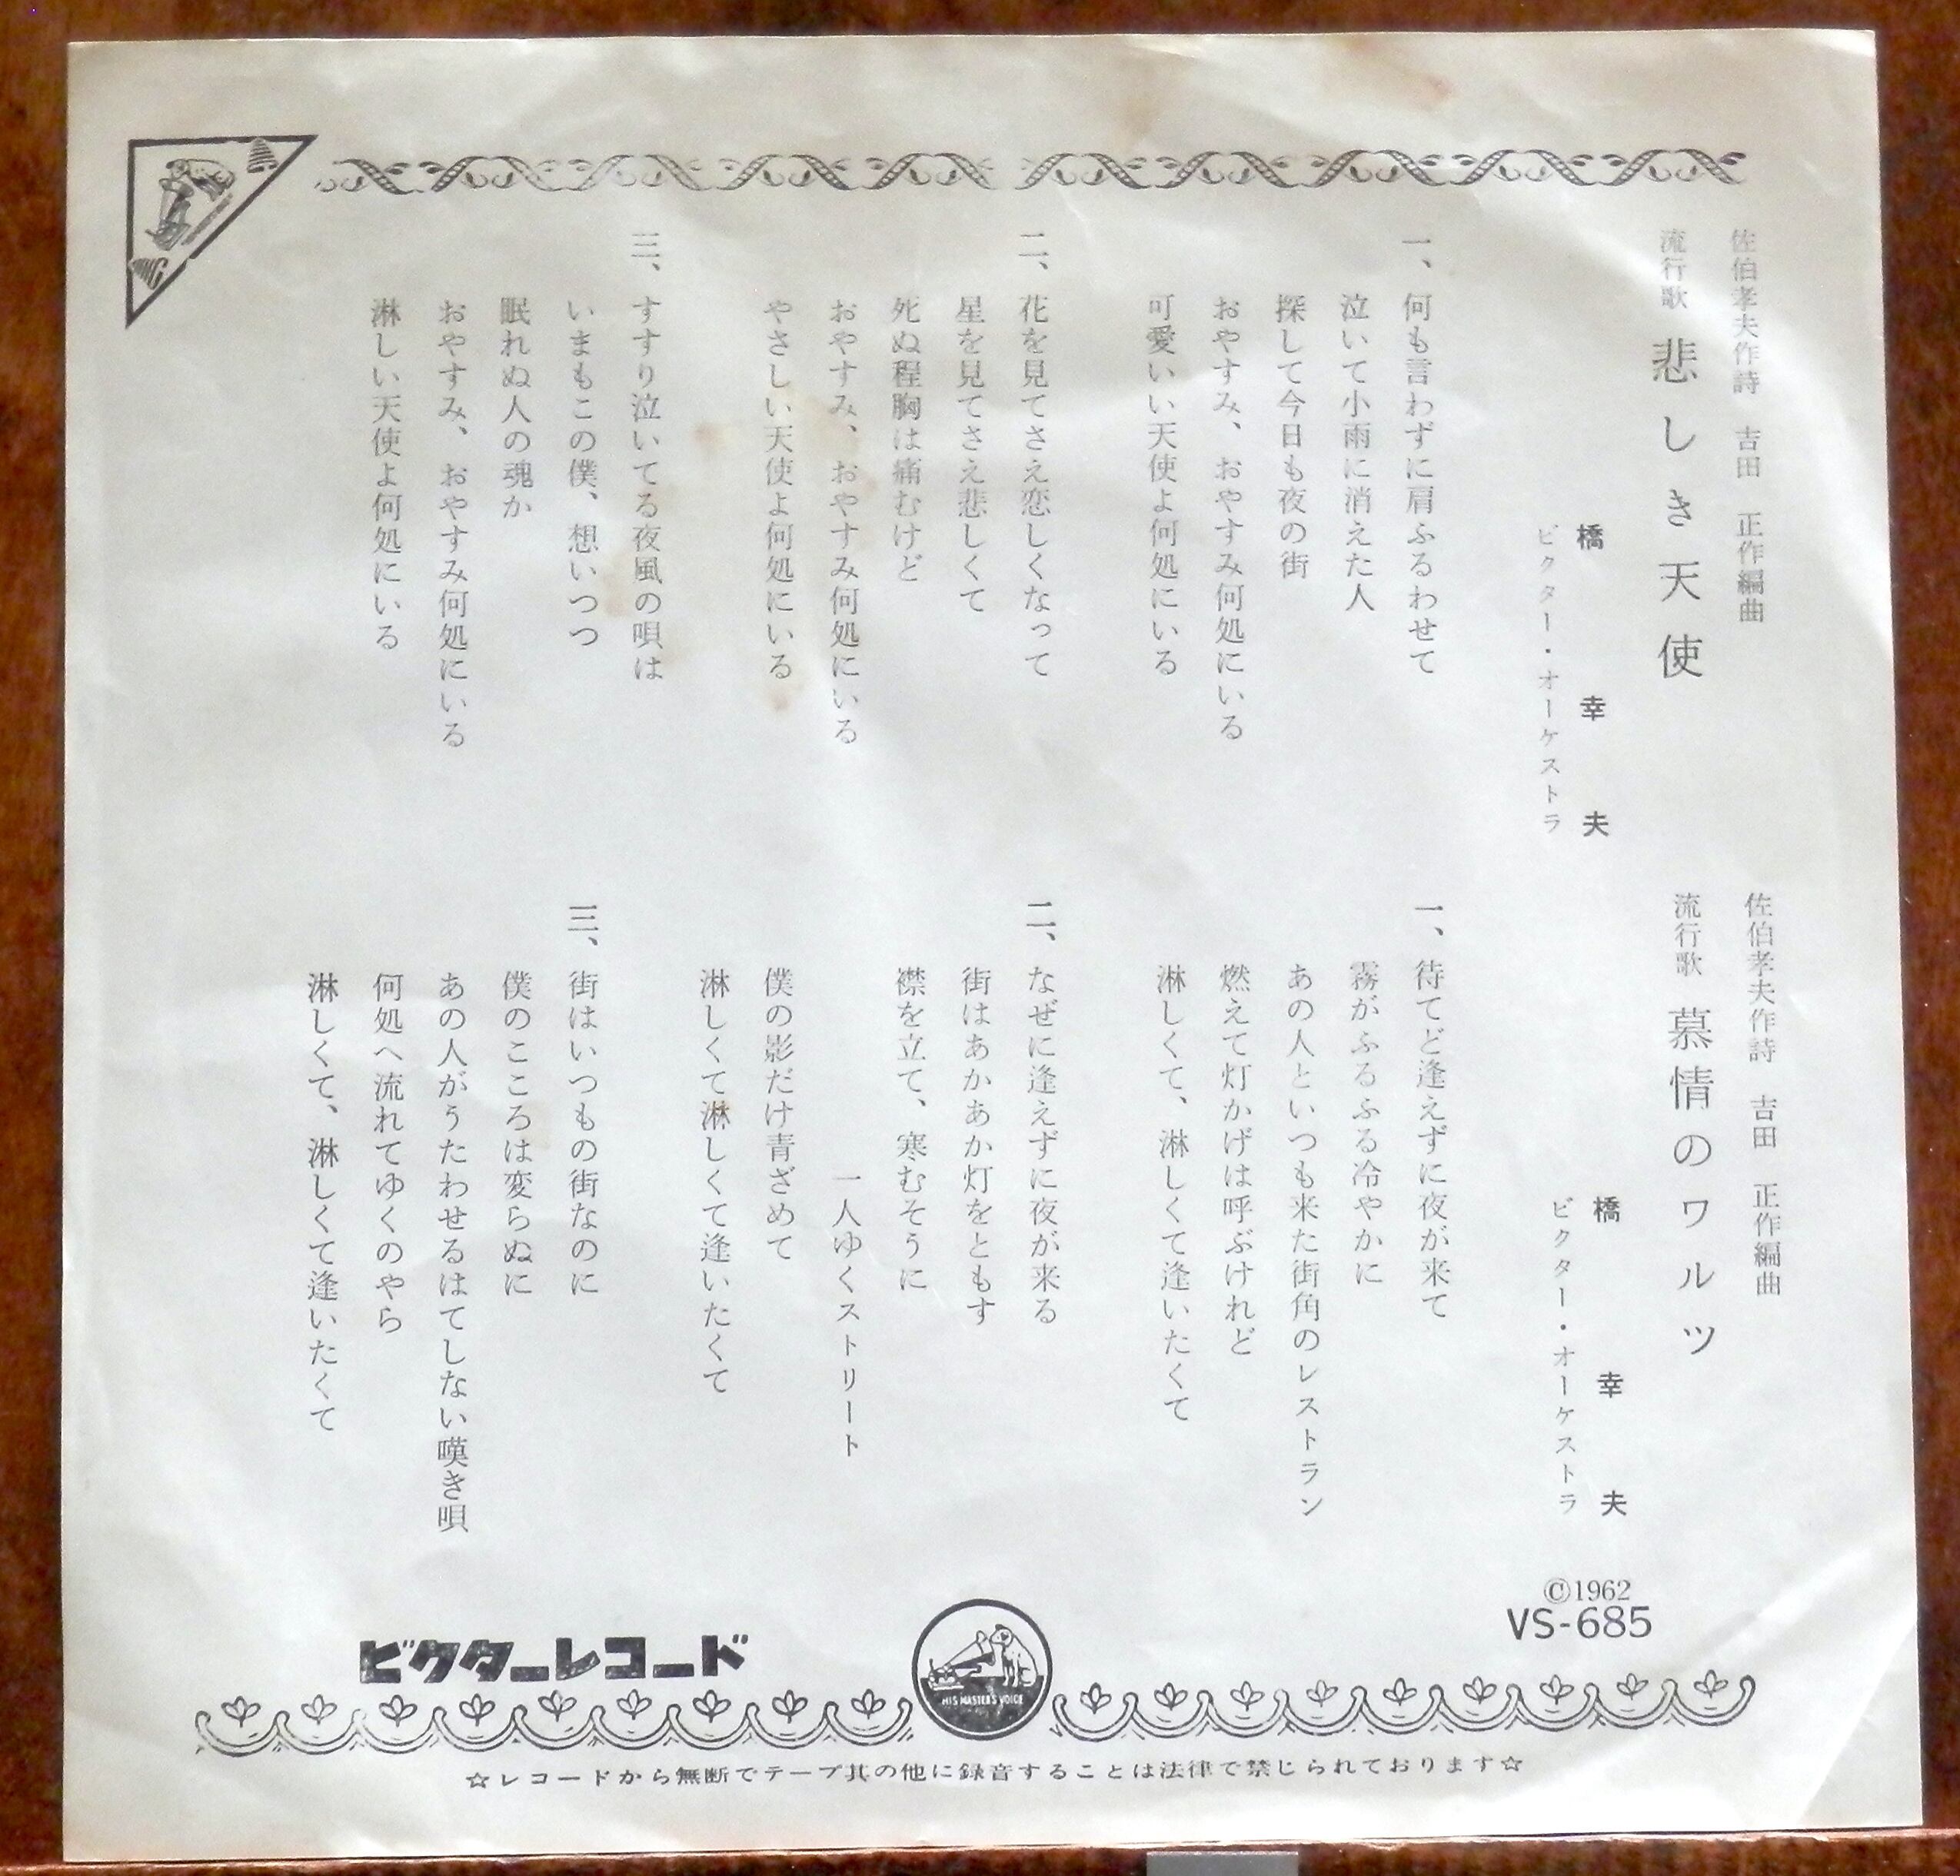 佐伯孝夫作詩　吉田　正作編曲
流行歌　悲しき天使
橋　幸夫
ビクター・オーケストラ
一、何も言わずに肩ふるわせて
泣いて小雨に消えた人
探して今日も夜の街
おやすみ、おやすみ何処にいる
可愛いい天使よ何処にいる
二、花を見てさえ恋しくなって
星を見てさえ悲しくて
死ぬ程胸は痛むけど
おやすみ、おやすみ何処にいる
やさしい天使よ何処にいる
三、すすり泣いてる夜風の唄は
いまもこの僕、想いつつ
眠れぬ人の魂か
おやすみ、おやすみ何処にいる
淋しい天使よ何処にいる
佐伯孝夫作詩　吉田　正作編曲
流行歌　慕情のワルツ
橋　幸夫
ビクター・オーケストラ
一、待てど逢えずに夜が来て
霧がふるふる冷やかに
あの人といつも来た街角のレストラン
燃えて灯かげは呼ぶけれど
淋しくて、淋しくて逢いたくて
二、なぜに逢えずに夜が来る
街はあかあか灯をともす
襟を立て、寒むそうに
一人ゆくストリート
僕の影だけ青ざめて
淋しくて淋しくて逢いたくて
三、街はいつもの街なのに
僕のこころは変らぬに
あの人がうたわせるはてしない嘆き唄
何処へ流れてゆくのやら
淋しくて、淋しくて逢いたくて
©1962
VS-685
ビクターレコード
HIS MASTER'S VOICE
☆レコードから無断でテープ其の他に録音することは法律で禁じられております☆